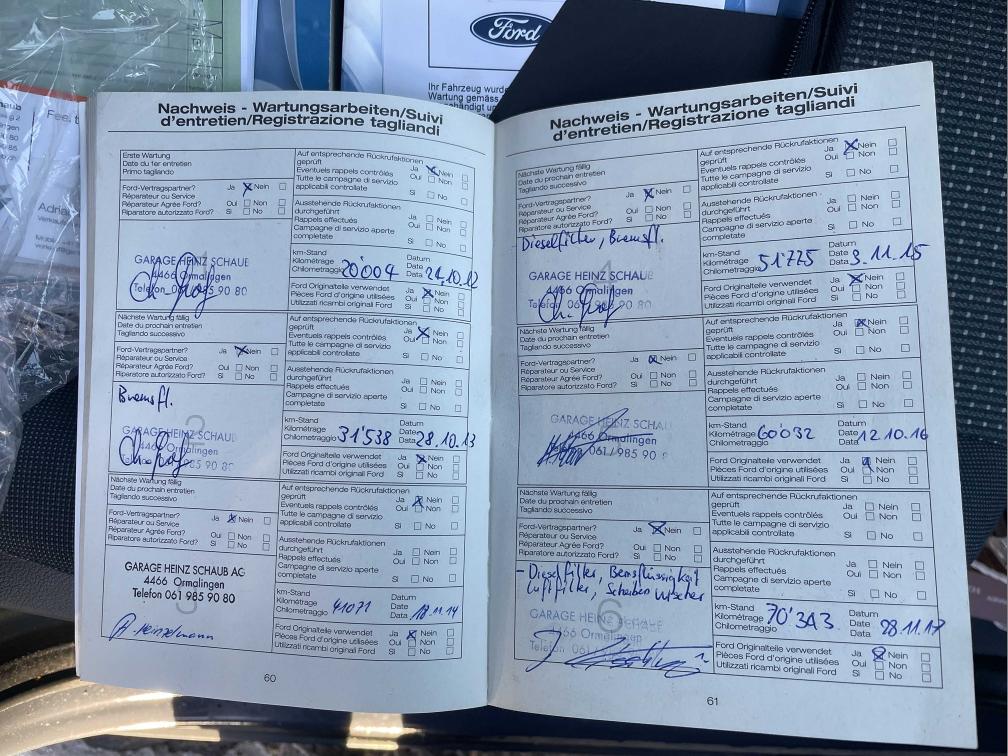 Ford
Ihr Fahrzeug wurde
Wartung gemäss
Nachweis - Wartungsarbeiten/Suivi
d'entretien/Registrazione tagliandi
Erste Wartung
Date du 1er entretien
Primo tagliando
Auf entsprechende Rückrufaktionen
geprüft
Ja Nein
Eventuels rappels contrôlés
Oui Non
Tutte le campagne di servizio
applicabili controllate
Si No
Ford-Vertragspartner?
Ja Nein
Réparateur ou Service
Réparateur Agrée Ford?
Oui Non
Riparatore autorizzato Ford?
Si No
Ausstehende Rückrufaktionen
durchgeführt
Ja Nein
Rappels effectués
Oui Non
Campagne di servizio aperte
completate
Si No
GARAGE HEINZ SCHAUB
4466 Ormalingen
Telefon 061 985 90 80
km-Stand
Kilométrage
Chilometraggio
20'004
Datum
Date
Data
24.10.12
Ford Originalteile verwendet
Ja Nein
Pièces Ford d'origine utilisées
Oui Non
Utilizzati ricambi originali Ford
Si No
Nächste Wartung fällig
Date du prochain entretien
Tagliando successivo
Auf entsprechende Rückrufaktionen
geprüft
Ja Nein
Eventuels rappels contrôlés
Oui Non
Tutte le campagne di servizio
applicabili controllate
Si No
Ford-Vertragspartner?
Ja Nein
Réparateur ou Service
Réparateur Agrée Ford?
Oui Non
Riparatore autorizzato Ford?
Si No
Ausstehende Rückrufaktionen
durchgeführt
Ja Nein
Rappels effectués
Oui Non
Campagne di servizio aperte
completate
Si No
Bremsfl.
2
GARAGE HEINZ SCHAU
4466 Ormalingen
985 90 80
km-Stand
Kilométrage
Chilometraggio
31'538
Datum
Date
Data
28.10.13
Ford Originalteile verwendet
Ja Nein
Pièces Ford d'origine utilisées
Oui Non
Utilizzati ricambi originali Ford
Si No
Nächste Wartung fällig
Date du prochain entretien
Tagliando successivo
Auf entsprechende Rückrufaktionen
geprüft
Ja Nein
Eventuels rappels contrôlés
Oui Non
Tutte le campagne di servizio
applicabili controllate
Si No
Ford-Vertragspartner?
Ja Nein
Réparateur ou Service
Réparateur Agrée Ford?
Oui Non
Riparatore autorizzato Ford?
Si No
Ausstehende Rückrufaktionen
durchgeführt
Ja Nein
Rappels effectués
Oui Non
Campagne di servizio aperte
completate
Si No
3
GARAGE HEINZ SCHAUB AG
4466 Ormalingen
Telefon 061 985 90 80
km-Stand
Kilométrage
Chilometraggio
41071
Datum
Date
Data
18.11.14
Ford Originalteile verwendet
Ja Nein
Pièces Ford d'origine utilisées
Oui Non
Utilizzati ricambi originali Ford
Si No
60
Nachweis - Wartungsarbeiten/Suivi
d'entretien/Registrazione tagliandi
Nächste Wartung fällig
Date du prochain entretien
Tagliando successivo
Auf entsprechende Rückrufaktionen
geprüft
Ja Nein
Eventuels rappels contrôlés
Oui Non
Tutte le campagne di servizio
applicabili controllate
Si No
Ford-Vertragspartner?
Ja Nein
Réparateur ou Service
Réparateur Agrée Ford?
Oui Non
Riparatore autorizzato Ford?
Si No
Ausstehende Rückrufaktionen
durchgeführt
Ja Nein
Rappels effectués
Oui Non
Campagne di servizio aperte
completate
Si No
Dieselfilter, Bremsfl.
4
GARAGE HEINZ SCHAUB
4466 Ormalingen
Telefon 061 985 90 80
km-Stand
Kilométrage
Chilometraggio
51'775
Datum
Date
Data
3.11.15
Ford Originalteile verwendet
Ja Nein
Pièces Ford d'origine utilisées
Oui Non
Utilizzati ricambi originali Ford
Si No
Nächste Wartung fällig
Date du prochain entretien
Tagliando successivo
Auf entsprechende Rückrufaktionen
geprüft
Ja Nein
Eventuels rappels contrôlés
Oui Non
Tutte le campagne di servizio
applicabili controllate
Si No
Ford-Vertragspartner?
Ja Nein
Réparateur ou Service
Réparateur Agrée Ford?
Oui Non
Riparatore autorizzato Ford?
Si No
Ausstehende Rückrufaktionen
durchgeführt
Ja Nein
Rappels effectués
Oui Non
Campagne di servizio aperte
completate
Si No
GARAGE HEINZ SCHAU
4466 Ormalingen
061 / 985 90
km-Stand
Kilométrage
Chilometraggio
60'032
Datum
Date
Data
12.10.16
Ford Originalteile verwendet
Ja Nein
Pièces Ford d'origine utilisées
Oui Non
Utilizzati ricambi originali Ford
Si No
Nächste Wartung fällig
Date du prochain entretien
Tagliando successivo
Auf entsprechende Rückrufaktionen
geprüft
Ja Nein
Eventuels rappels contrôlés
Oui Non
Tutte le campagne di servizio
applicabili controllate
Si No
Ford-Vertragspartner?
Ja Nein
Réparateur ou Service
Réparateur Agrée Ford?
Oui Non
Riparatore autorizzato Ford?
Si No
Ausstehende Rückrufaktionen
durchgeführt
Ja Nein
Rappels effectués
Oui Non
Campagne di servizio aperte
completate
Si No
- Dieselfilter, Bremsflüssigkeit
Luftfilter, Scheibenwischer
6
GARAGE HEINZ SCHAUB
4466 Ormalingen
Telefon 061
km-Stand
Kilométrage
Chilometraggio
70'343
Datum
Date
Data
28.11.17
Ford Originalteile verwendet
Ja Nein
Pièces Ford d'origine utilisées
Oui Non
Utilizzati ricambi originali Ford
Si No
61